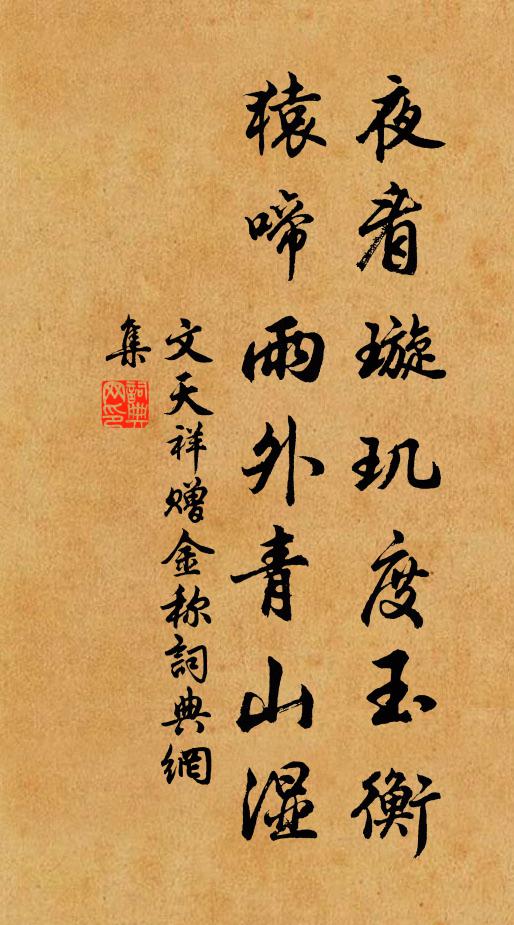 夜看璇玑度玉衡
猿啼雨外青山湿
文天祥赠金称詞典網
集
詞典網印